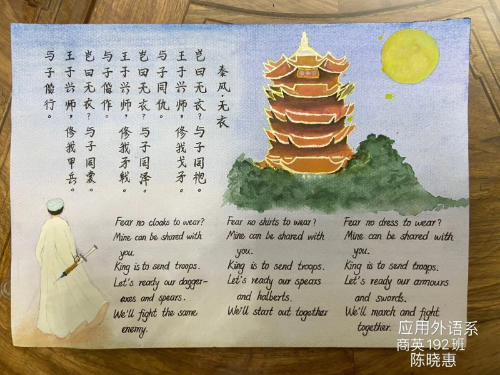 秦风·无衣
岂曰无衣?与子同袍。
王于兴师,修我戈矛。
与子同仇。
岂曰无衣?与子同泽。
王于兴师,修我矛戟。
与子偕作。
岂曰无衣?与子同裳。
王于兴师,修我甲兵。
与子偕行。
Fear no cloaks to wear?
Mine can be shared with
you.
King is to send troops.
Let's ready our dagger-
axes and spears.
We'll fight the same
enemy.
Fear no shirts to wear?
Mine can be shared with
you.
King is to send troops.
Let's ready our spears
and halberts.
We'll start out together
Fear no dress to wear?
Mine can be shared with
you.
King is to send troops.
Let's ready our armours
and swords.
We'll march and fight
together.
应用外语系
商英192班
陈晓惠